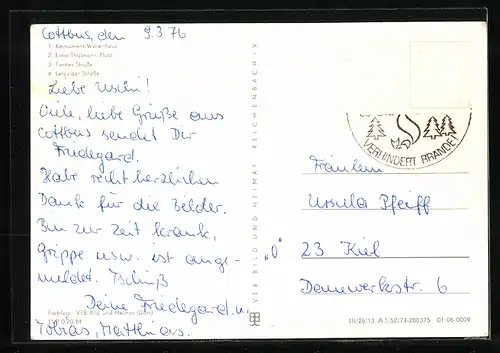 Cottbus, den 9.3.76
1. Konsument-Warenhaus
2. Ernst-Thälmann-Platz
3. Forster Straße
4. Leipziger Straße
Liebe Uschi!
Viele, liebe Grüße aus
Cottbus sendet Dir
Friedegard.
Habe recht herzlichen
Dank für die Bilder.
Bin zur Zeit krank,
Grippe usw. ist ange-
meldet. Tschüß
Deine Friedegard u.
Tobias, Matthias.
Farbfotos: VEB Bild und Heimat
EVP 0,20 M
VEB BILD UND HEIMAT REICHENBACH i. V.
VERHINDERT BRÄNDE
Fräulein
Ursula Pfeiff
"O"
23 Kiel
Danewerkstr. 6
III/26/13 A 1/52/74-280375 01-06-0009